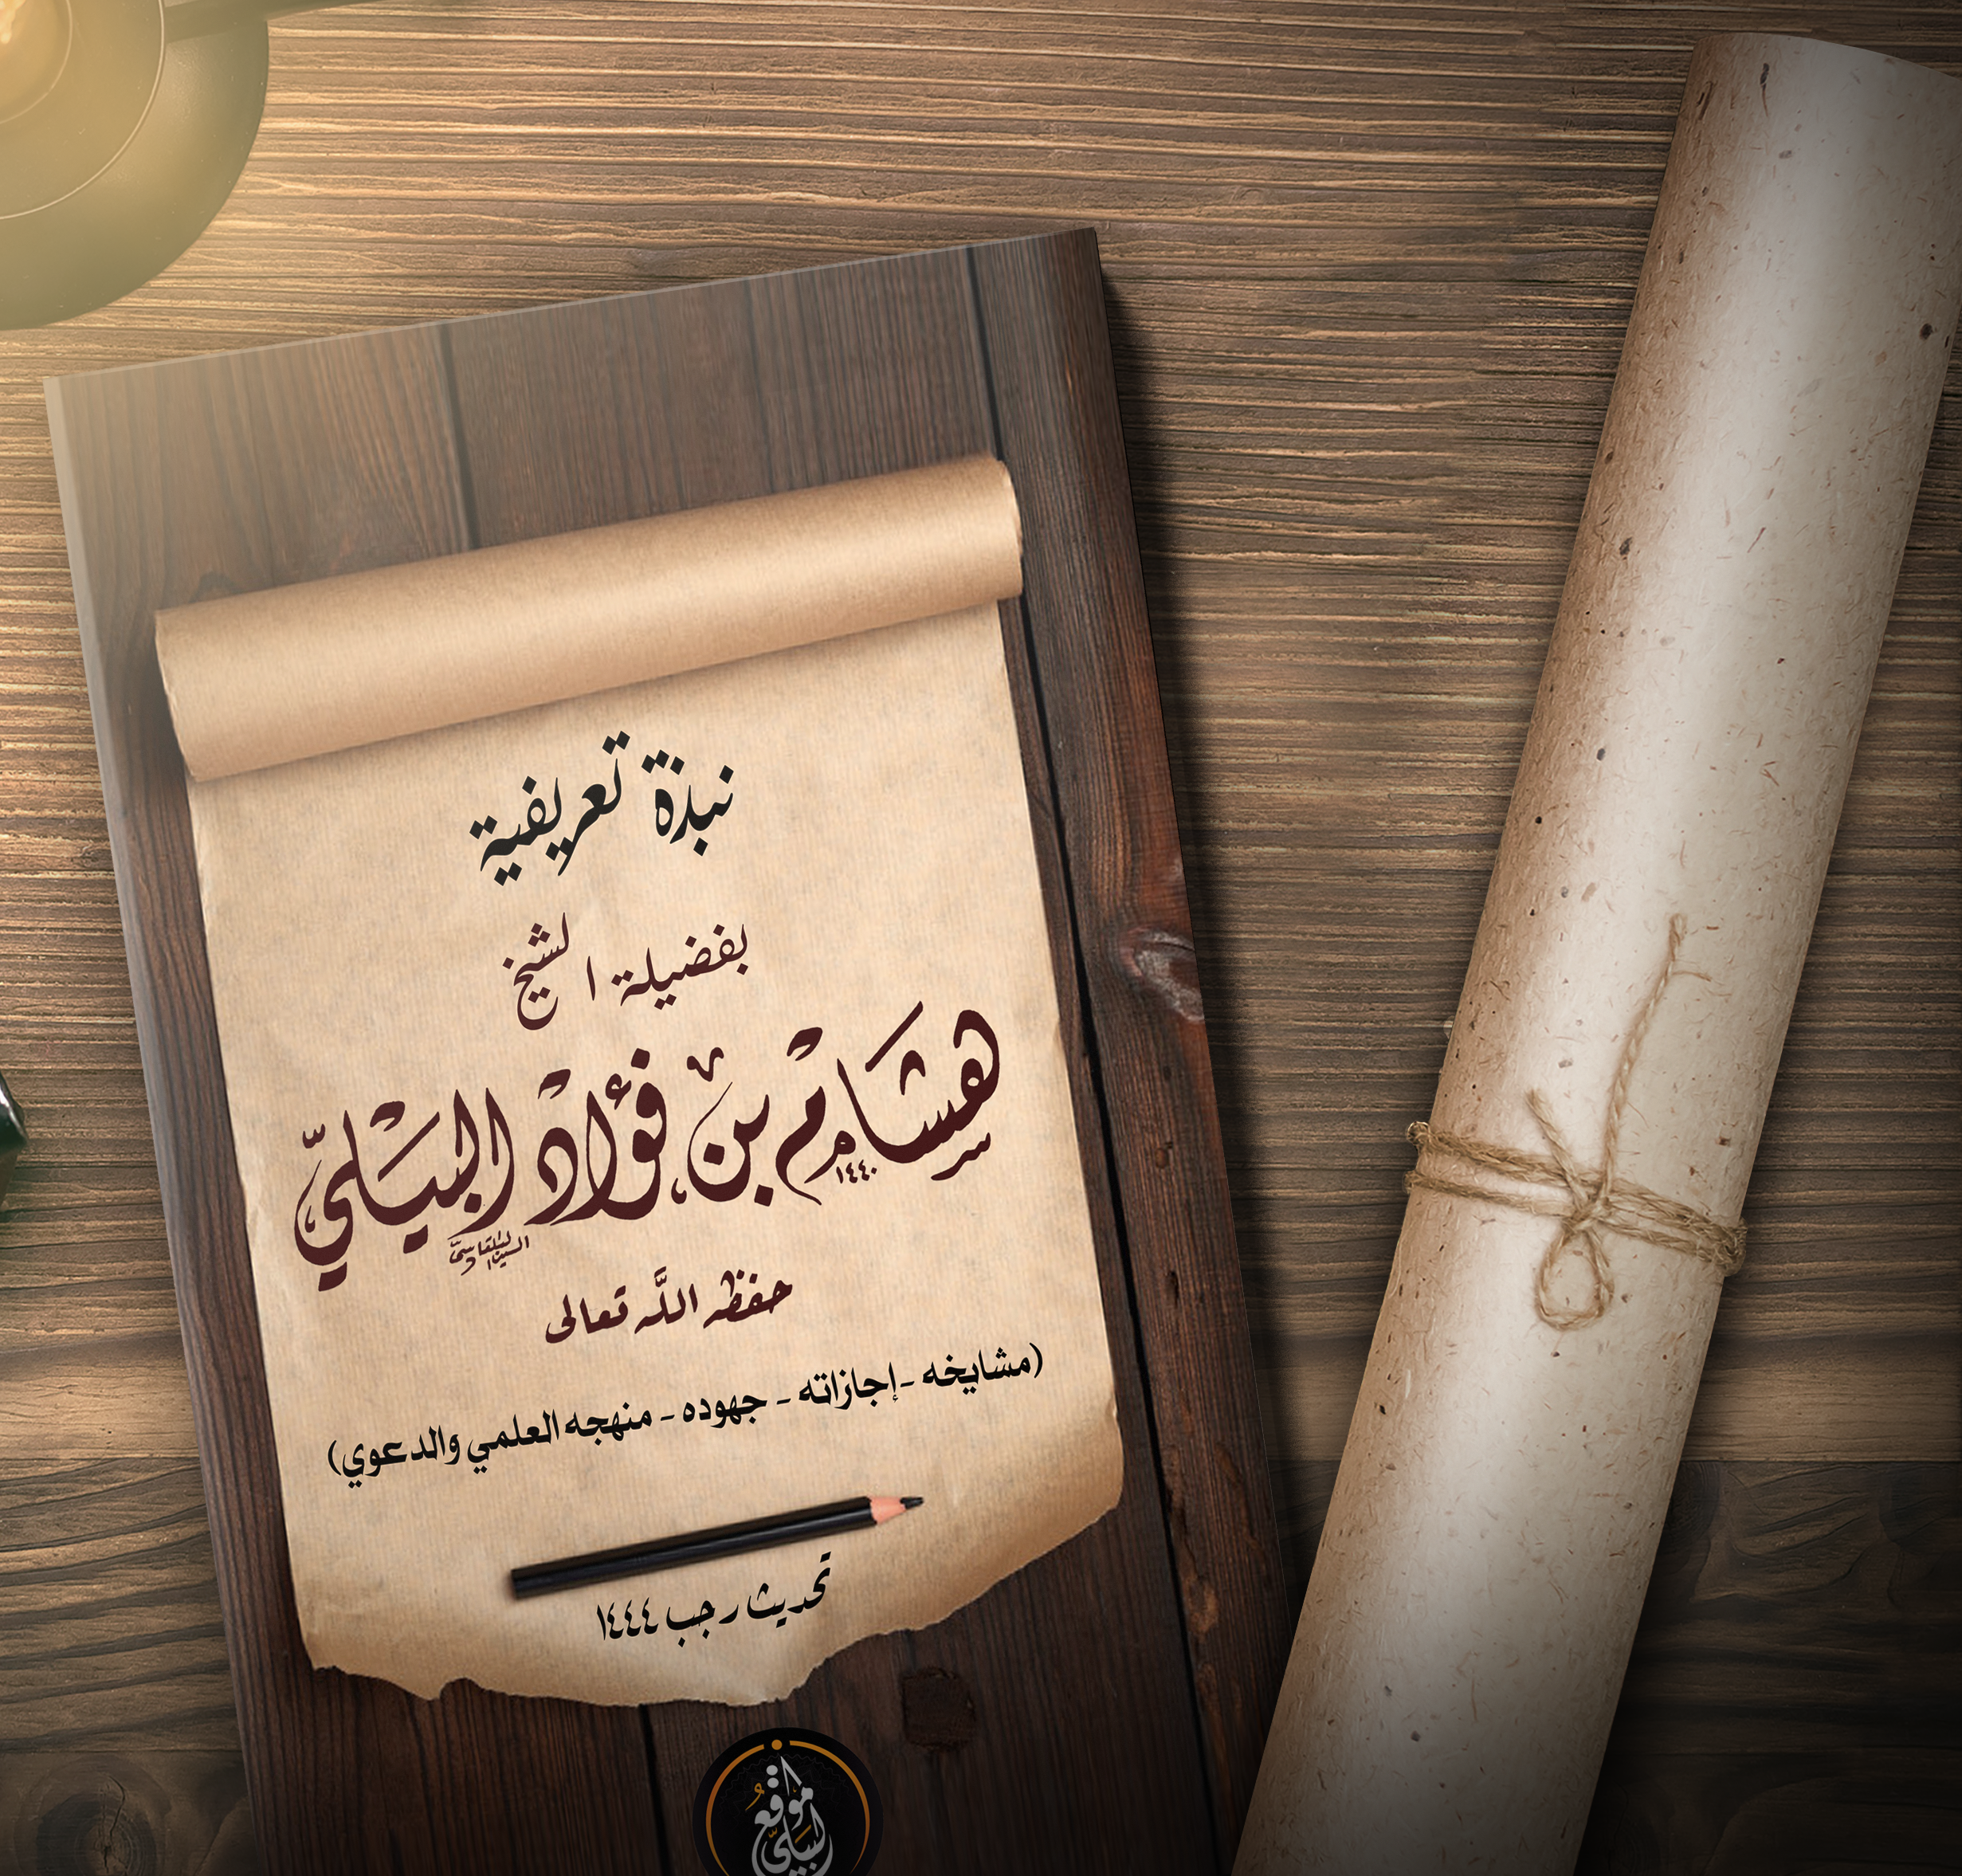 نبذة تعريفية
بفضيلة الشيخ
هشام بن فؤاد البيلي
١٤٤٠
حفظه الله تعالى
(مشايخه - إجازاته - جهوده - منهجه العلمي والدعوي)
تحديث رجب ١٤٤٤
موقع البيلي